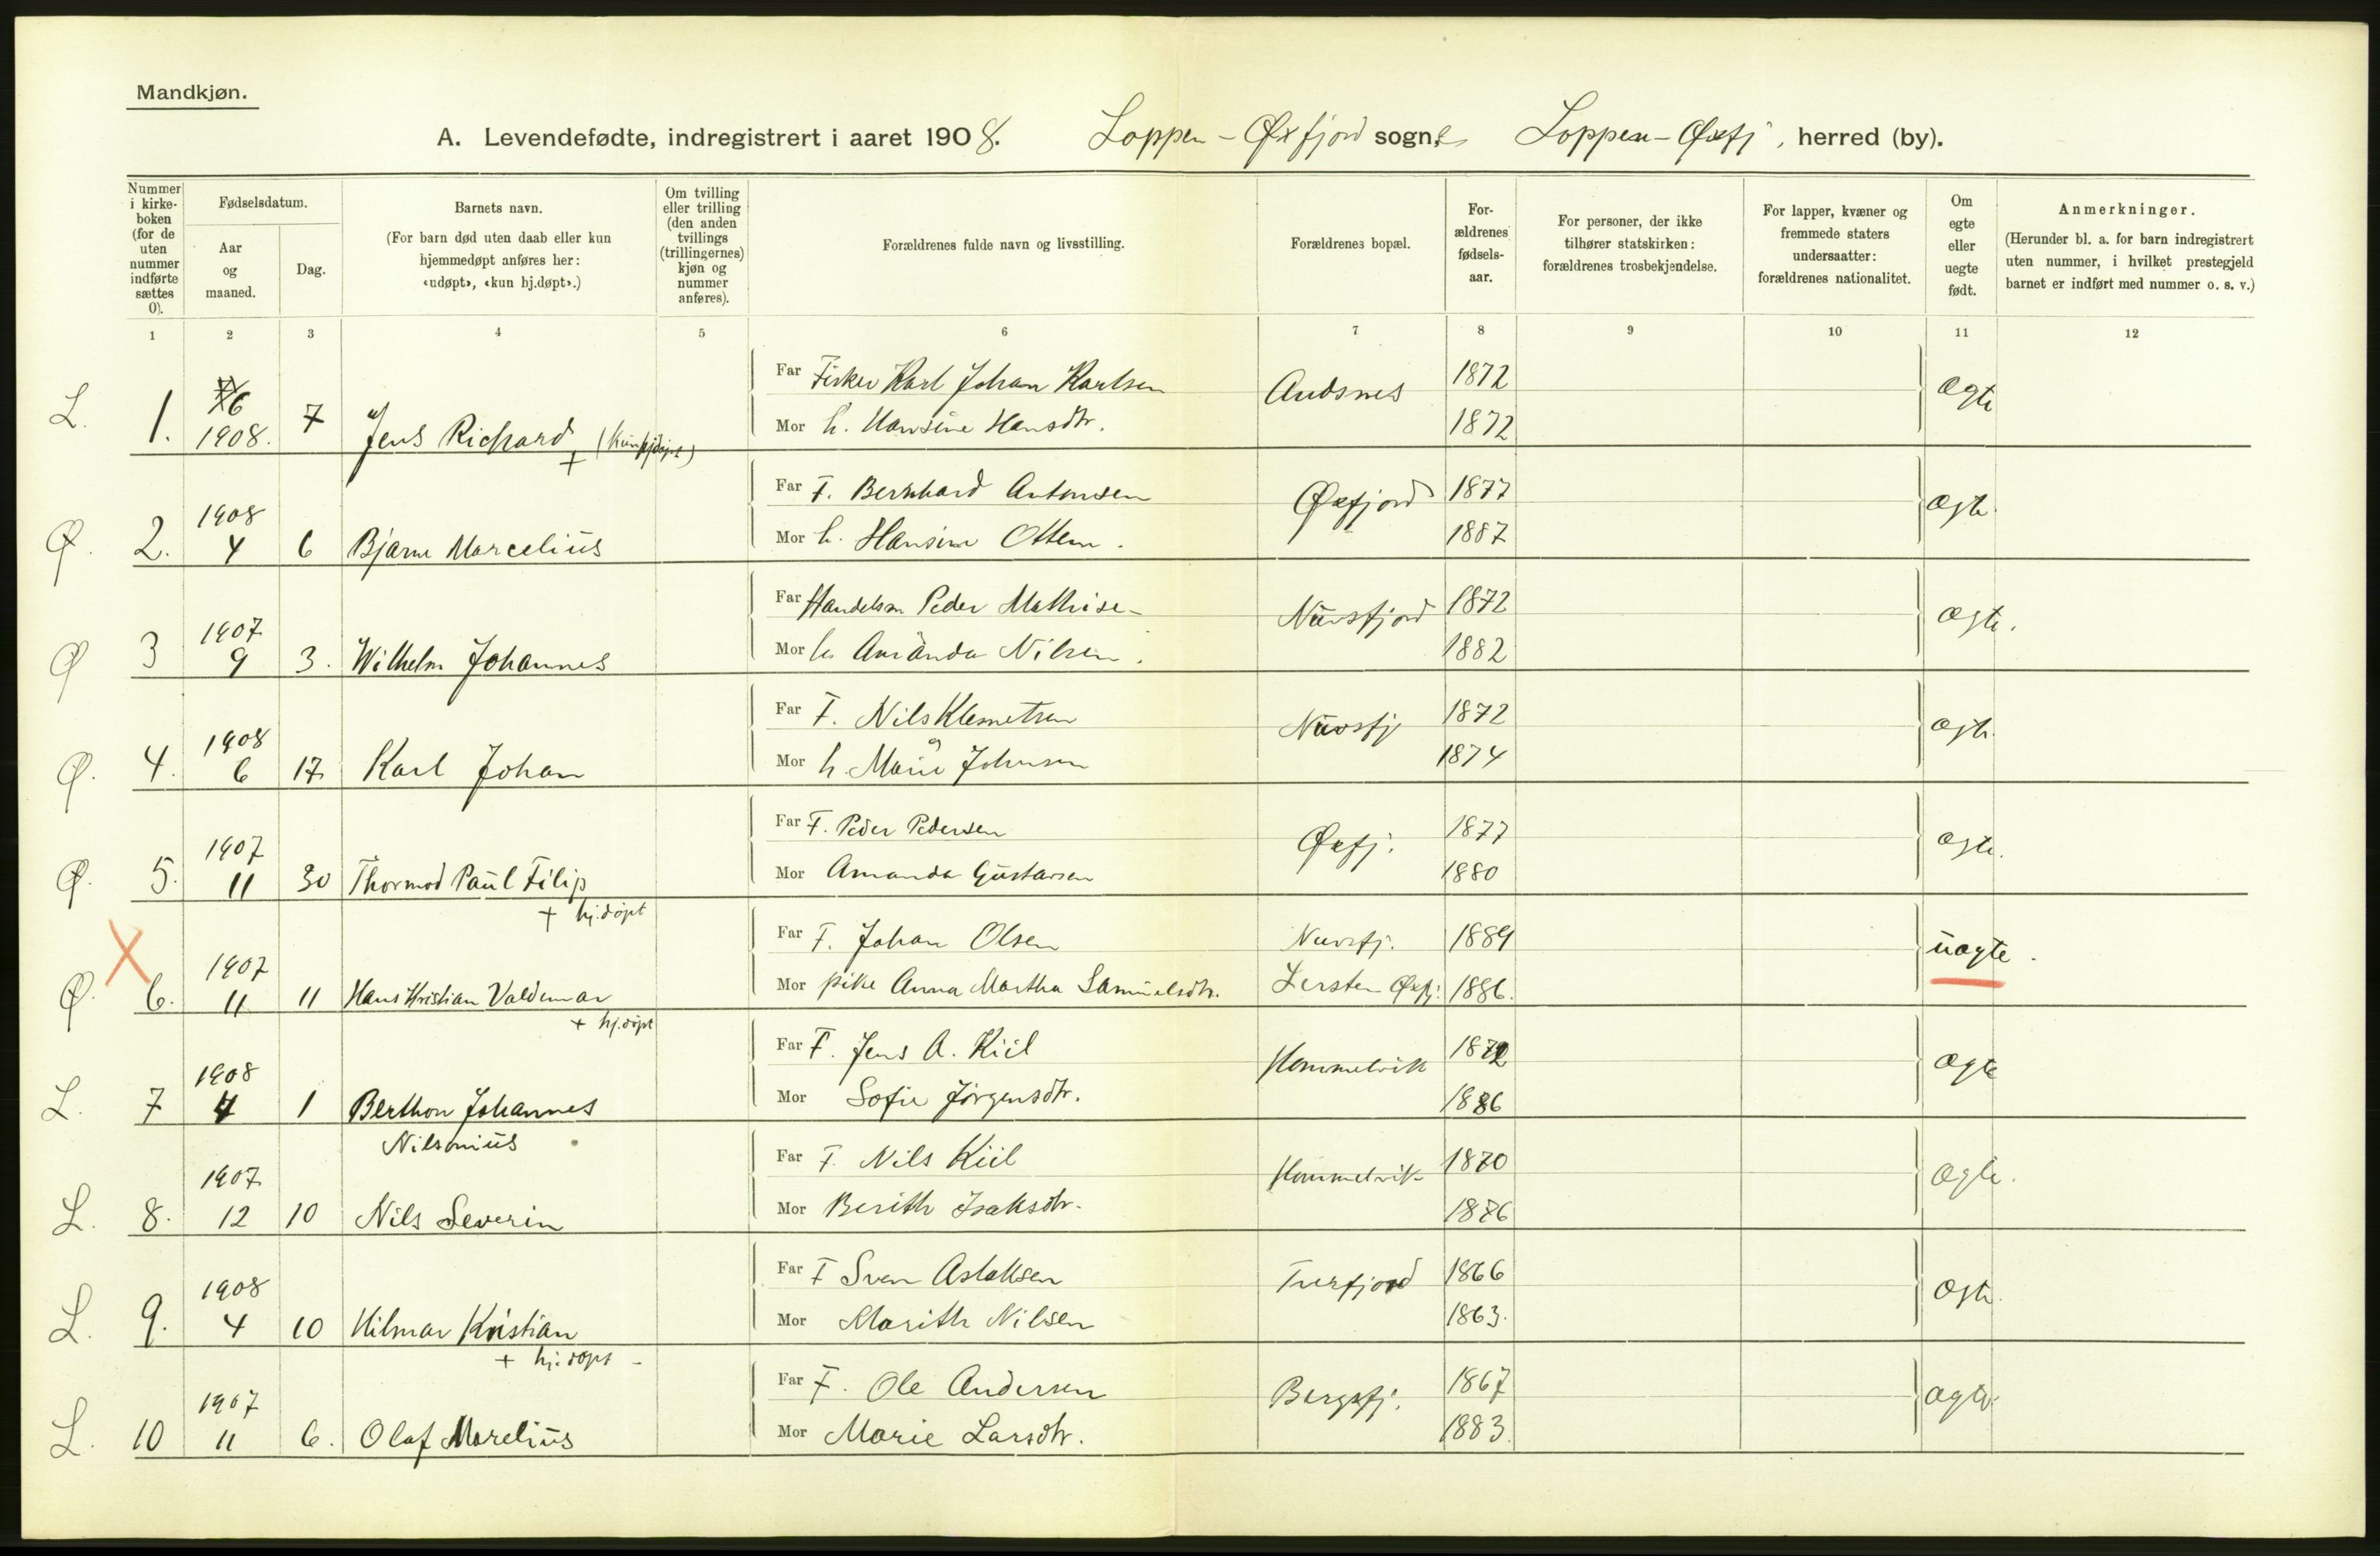 Mandkjøn.
A. Levendefødte, indregistrert i aaret 1908. Loppen - Øxfjord sogne Loppen - Øxfj, herred (by).
Nummer i kirke-boken (for de uten nummer indførte sættes 0).
Fødselsdatum.
Aar og maaned.
Dag.
Barnets navn.
(For barn død uten daab eller kun hjemmedøpt anføres her: «udøpt», «kun hj.døpt».)
Om tvilling eller trilling (den anden tvillings (trillingernes) kjøn og nummer anføres).
Forældrenes fulde navn og livsstilling.
Forældrenes bopæl.
For-ældrenes fødsels-aar.
For personer, der ikke tilhører statskirken: forældrenes trosbekjendelse.
For lapper, kvæner og fremmede staters undersaatter: forældrenes nationalitet.
Om egte eller uegte født.
Anmerkninger.
(Herunder bl. a. for barn indregistrert uten nummer, i hvilket prestegjeld barnet er indført med nummer o. s. v.)
1 2 3 4 5 6 7 8 9 10 11 12
Far Fisker Karl Johan Karlsen Andsnes 1872 ægte
L. 1. 6 1908. 7 Jens Richard + (kun hjdøpt)
Mor h. Hansine Hansdtr. 1872
Far F. Bernhard Antonsen Øxfjord 1877 ægte
Ø. 2. 1908 4 6 Bjarne Marcelius
Mor h. Hansine Ottem. 1887
Far Handelsm Peder Mathise- Nuvsfjord 1872 ægte.
Ø 3 1907 9 3. Wilhelm Johannes
Mor h. Amanda Nilsen. 1882
Far F. Nils Klemetsen Nuvsfj 1872 ægte.
Ø. 4. 1908 6 17 Karl Johan
Mor h. Marie Johnsen 1874
Far F. Peder Pedersen Øxfj. 1877 ægte.
Ø. 5. 1907 11 30 Thormod Paul Filip
+ hj.døpt
Mor Amanda Gustavsen 1880
Far F. Johan Olsen Nuvsfj. 1889 uægte.
X
Ø. 6. 1907 11 11 Hans Kristian Valdemar
+ hj.døpt
Mor pike Anna Martha Samuelsdtr. Øxfj. 1886.
Far F. Jens A. Kiil Hommelvik 1872 ægte
L. 7 1908 4 1 Berthon Johannes
Nilsonius
Mor Sofie Jörgensdtr. 1886
Far F. Nils Kiil Hommelvik 1870 ægte.
L. 8. 1907 12 10 Nils Severin
Mor Berith Isaksdtr. 1876
Far F Sven Aslaksen Tverfjord 1866 ægte.
L. 9. 1908 4 10 Hilmar Kristian
+ hj.døpt -
Mor Marith Nilsen 1863.
Far F. Ole Andersen Bergsfj. 1867 ægte.
L. 10 1907 11 6. Olaf Marelius
Mor Marie Larsdtr. 1883.